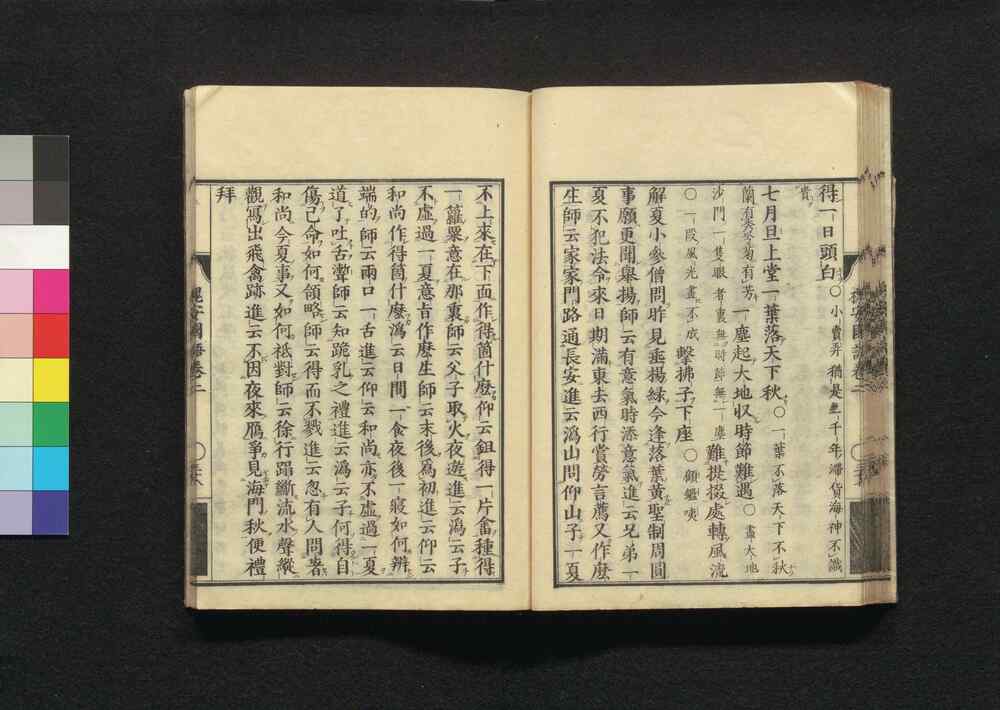 得一日頭白○小賣弄猶是無千年滯貨海神不識
貴
七月旦上堂一葉落天下秋○一葉不落天下不秋
蘭有秀菊有芳一塵起大地収時節難遇○盡大地
沙門一隻眼者裏無時節無一塵難提掇處轉風流
○一段風光畫不成擊拂子下座○顧鑑咦
解夏小參僧問昨見垂楊緑今逢落葉黄聖制周圓
事願更聞舉揚師云有意氣時添意氣進云兄弟一
夏不犯法令來日期滿東去西行賞勞言薦又作麼
生師云家家門路通長安進云潙山問仰山子一夏
不上來在下面作得箇什麼仰云鉏得一片畬種得
一籮粟意在那裏師云父子取火夜遊進云潙云子
不虚過一夏意旨作麼生師云末後爲初進云仰云
和尚作得箇什麼潙云日間一食夜後一寢如何辨
端的師云兩口一舌進云仰云和尚亦不虚過一夏
道了吐舌聻師云知跪乳之禮進云潙云子何得自
傷己命如何領略師云得而不戮進云忽有人問著
和尚今夏事又如何祗對師云徐行蹋斷流水聲縱
觀寫出飛禽跡進云不因夜來鴈爭見海門秋便禮
拜
槐安國語卷二